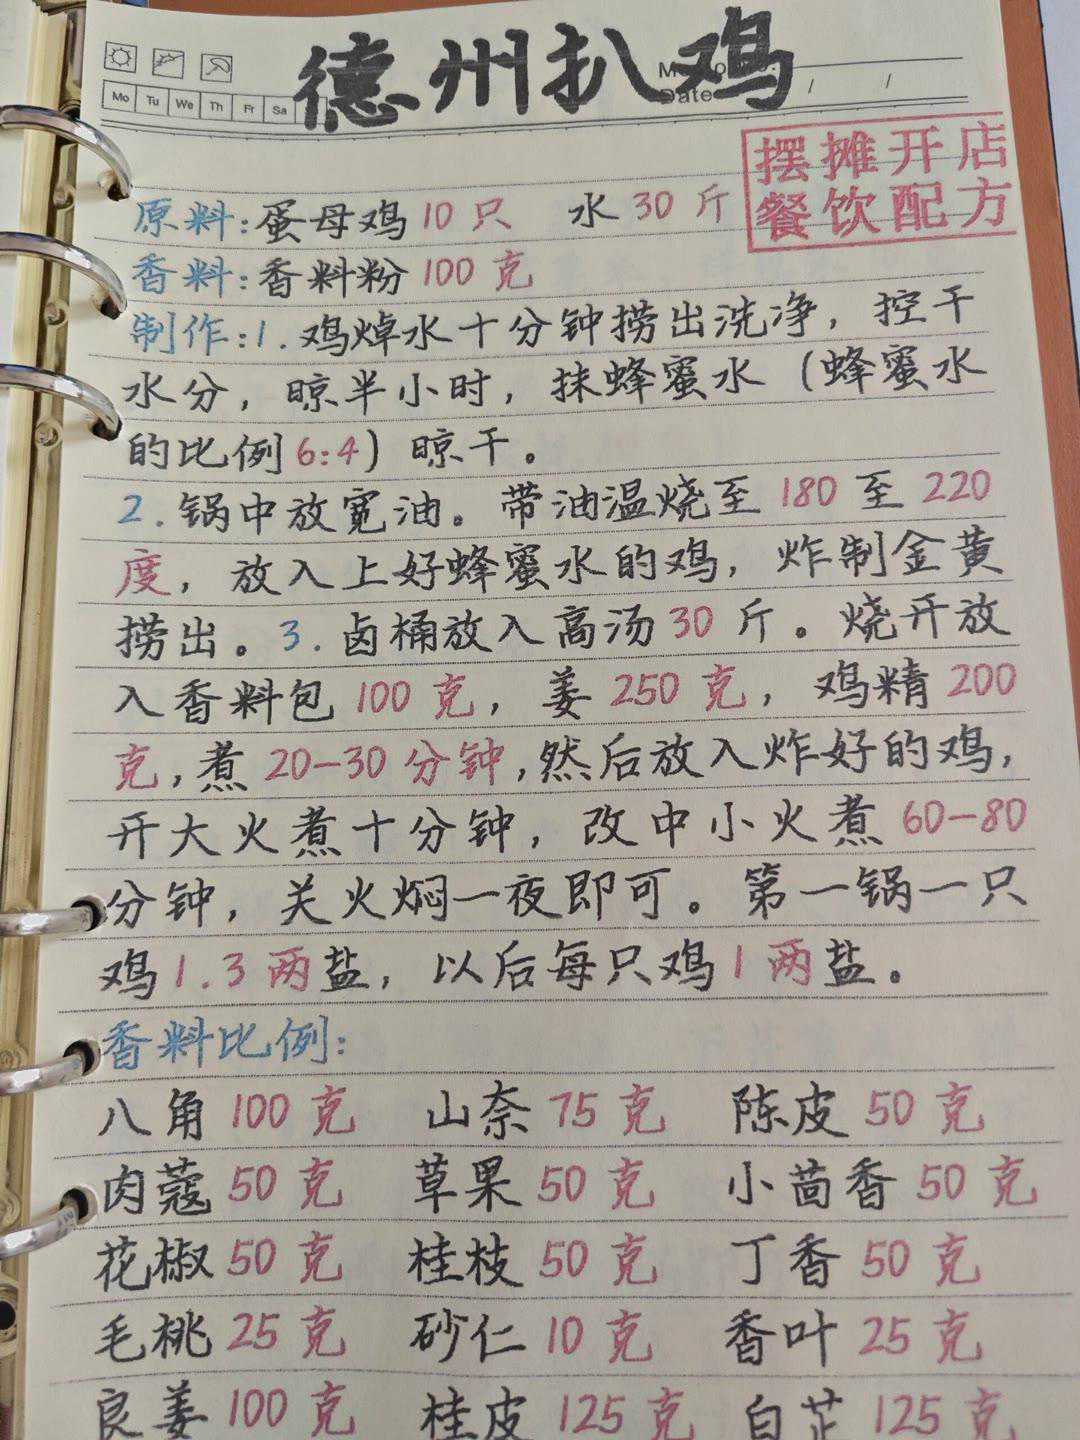 德州扒鸡
Mo Tu We Th Fr Sa
Date / /
摆摊开店
餐饮配方
原料:蛋母鸡10只 水30斤
香料:香料粉100克
制作:1.鸡焯水十分钟捞出洗净,控干
水分,晾半小时,抹蜂蜜水(蜂蜜水
的比例6:4)晾干。
2.锅中放宽油。带油温烧至180至220
度,放入上好蜂蜜水的鸡,炸制金黄
捞出。3.卤桶放入高汤30斤。烧开放
入香料包100克,姜250克,鸡精200
克,煮20-30分钟,然后放入炸好的鸡,
开大火煮十分钟,改中小火煮60-80
分钟,关火焖一夜即可。第一锅一只
鸡1.3两盐,以后每只鸡1两盐。
香料比例:
八角100克 山奈75克 陈皮50克
肉蔻50克 草果50克 小茴香50克
花椒50克 桂枝50克 丁香50克
毛桃25克 砂仁10克 香叶25克
良姜100克 桂皮125克 白芷125克